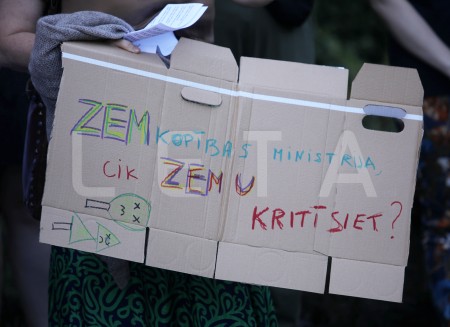 ZEMKOPĪBAS MINISTRIJA,
CIK ZEMU
KRITĪSIET?
LETA